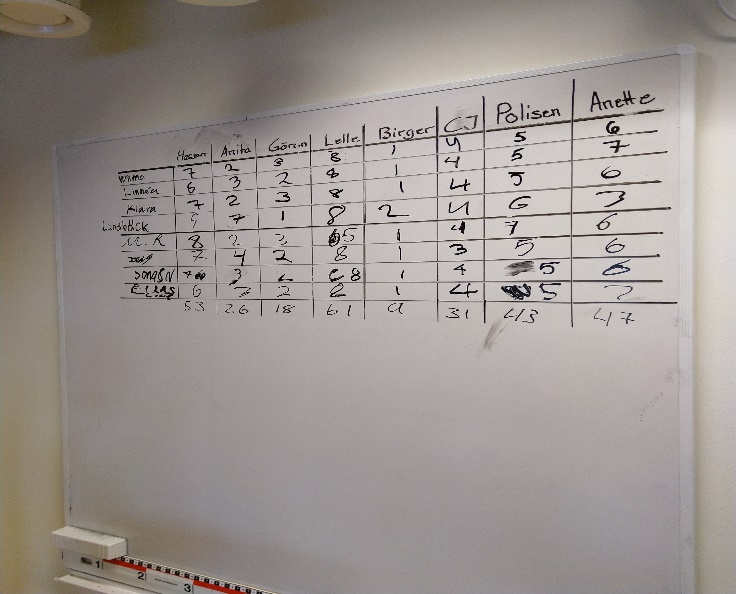 Hassan Anita Göran Lelle Birger C.J Polisen Anette
7 2 3 8 1 4 5 6
Linnea 6 3 2 8 1 4 5 7
Klara 7 2 3 8 1 4 5 6
Lundbäck 5 7 1 8 2 4 6 3
M.R 8 2 2 5 1 4 7 6
7 4 2 8 1 3 5 6
7 3 2 8 1 4 5 6
Elias 6 3 2 8 1 4 5 7
53 26 18 61 9 31 43 47
1 2 3